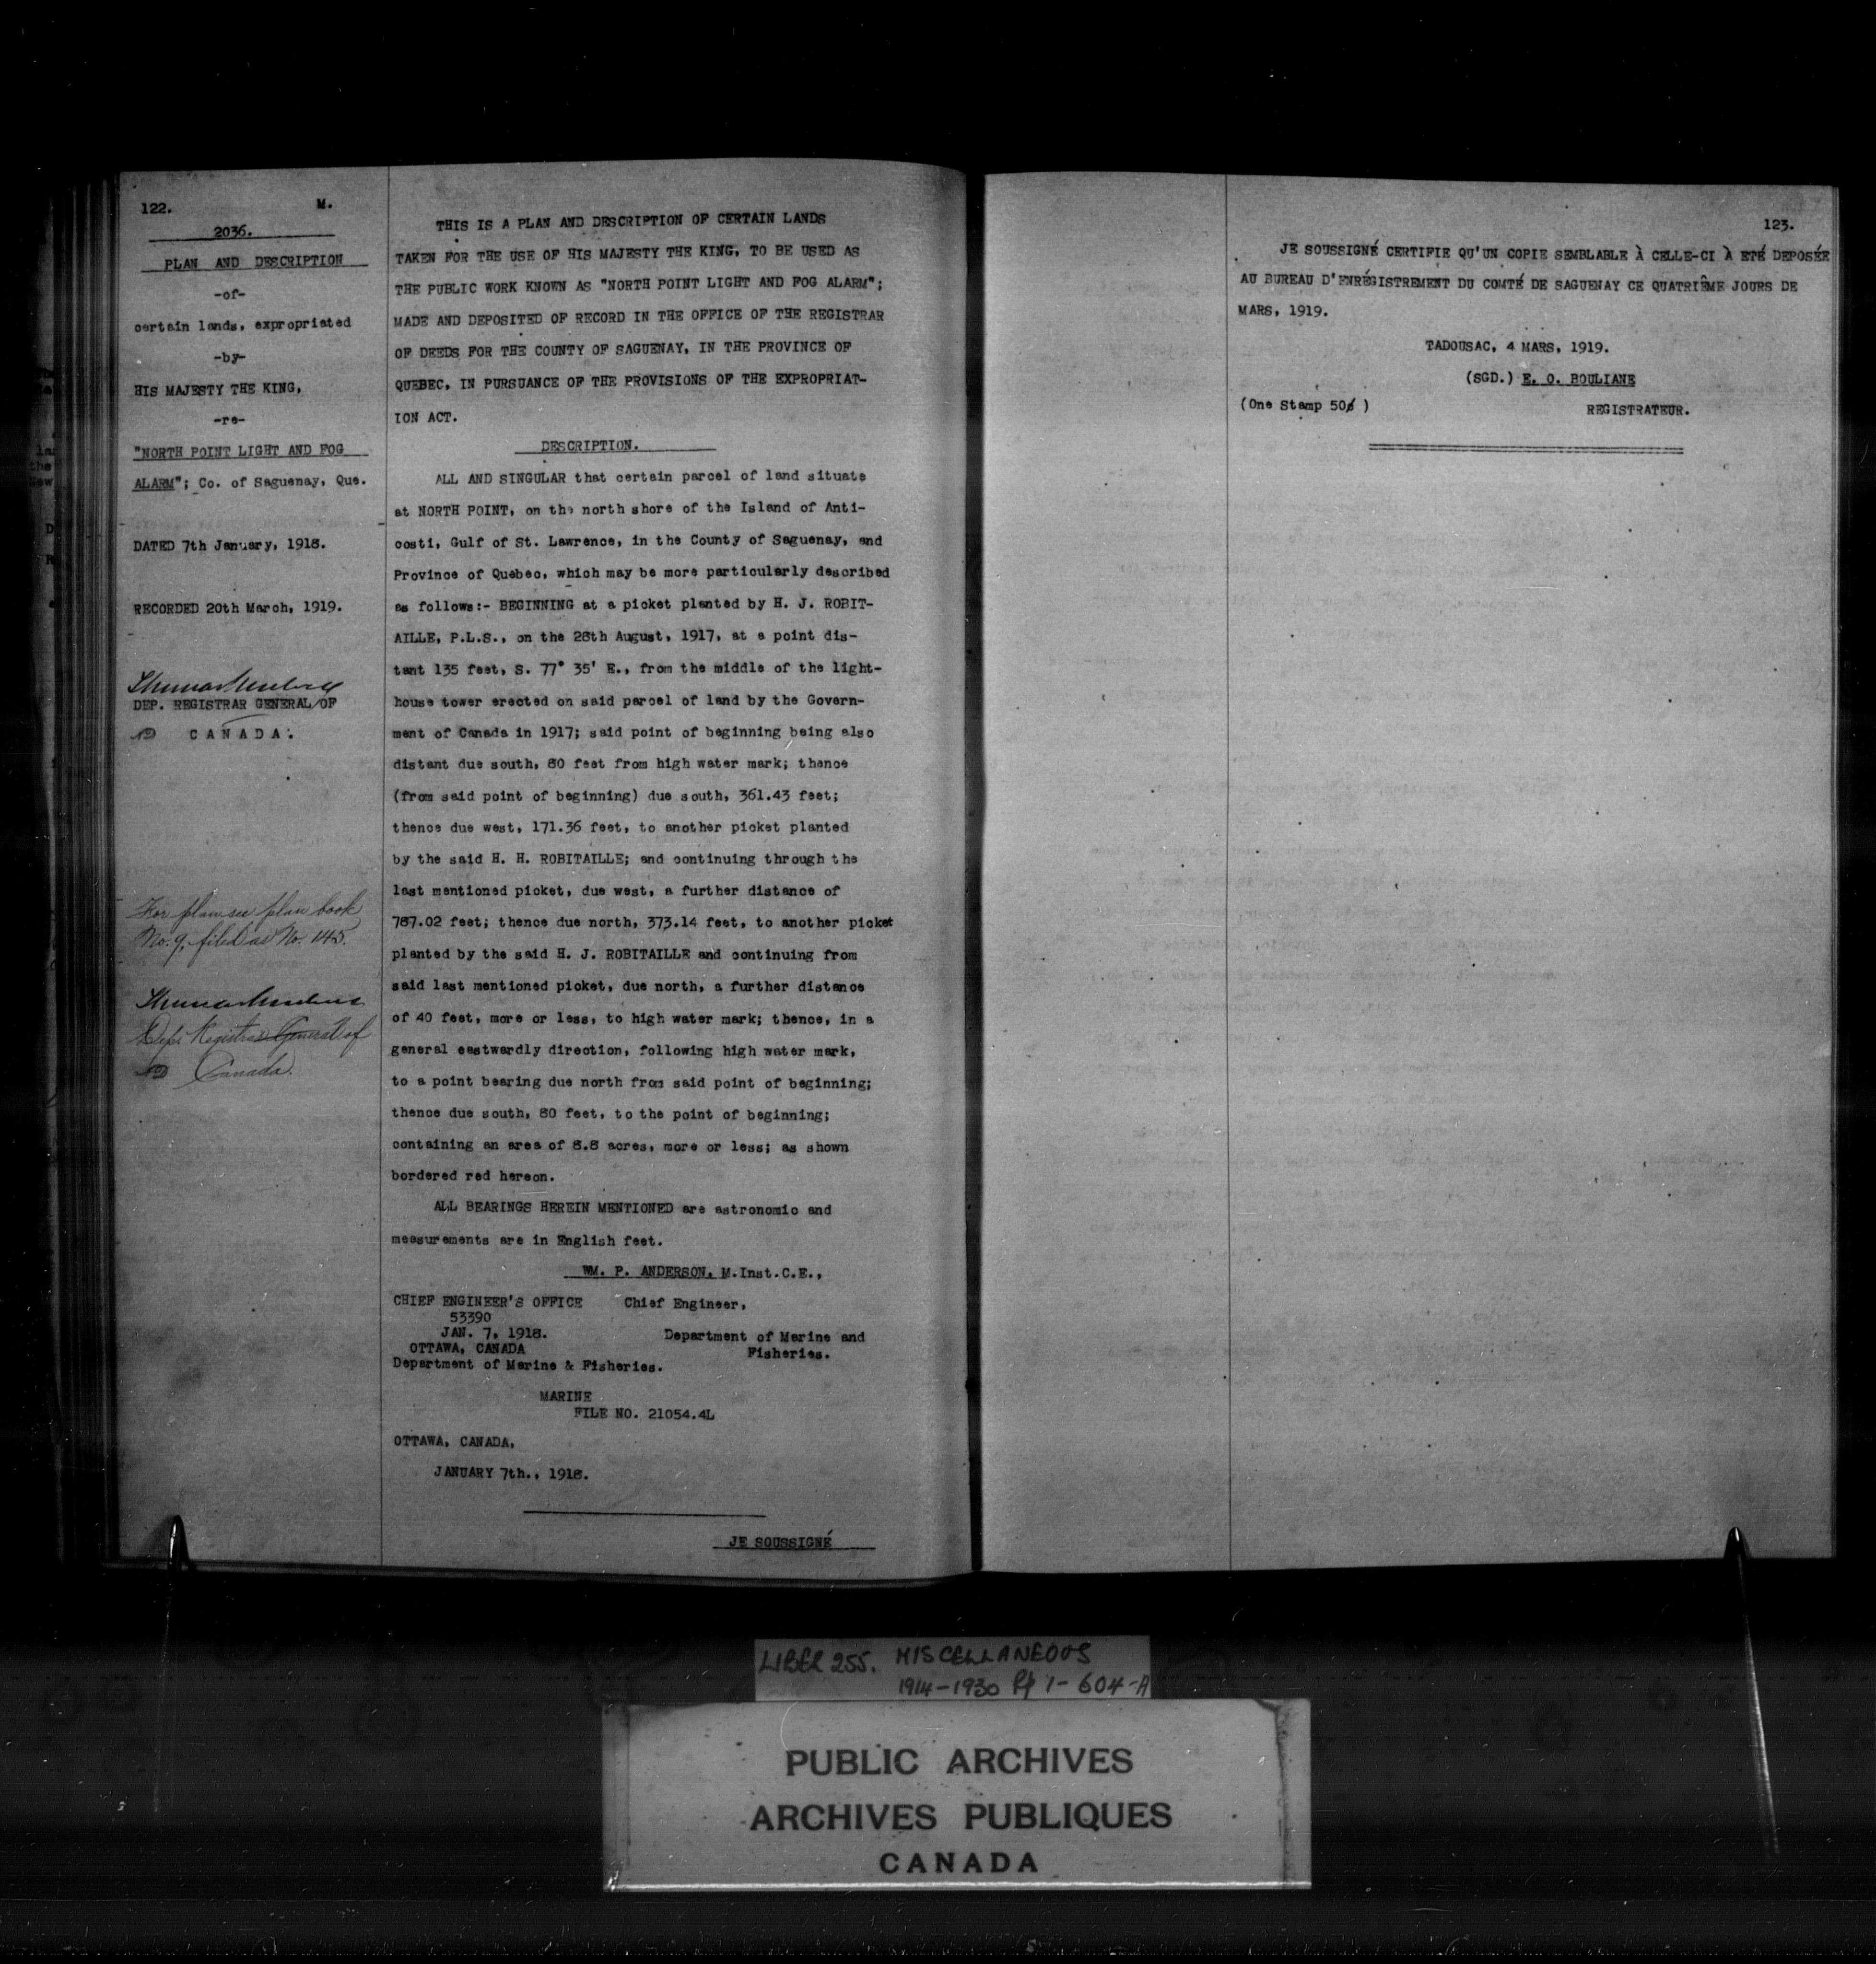 122. M.
2036.
PLAN AND DESCRIPTION
-of-
certain lands, expropriated
-by-
HIS MAJESTY THE KING,
-re-
"NORTH POINT LIGHT AND FOG
ALARM"; Co. of Saguenay, Que.
DATED 7th January, 1918.
RECORDED 20th March, 1919.
DEP. REGISTRAR GENERAL OF
CANADA.
For plan see plan book
No. 9, filed as No. 145.
Dep. Registrar General of
Canada.
THIS IS A PLAN AND DESCRIPTION OF CERTAIN LANDS
TAKEN FOR THE USE OF HIS MAJESTY THE KING, TO BE USED AS
THE PUBLIC WORK KNOWN AS "NORTH POINT LIGHT AND FOG ALARM";
MADE AND DEPOSITED OF RECORD IN THE OFFICE OF THE REGISTRAR
OF DEEDS FOR THE COUNTY OF SAGUENAY, IN THE PROVINCE OF
QUEBEC, IN PURSUANCE OF THE PROVISIONS OF THE EXPROPRIAT-
ION ACT.
DESCRIPTION.
ALL AND SINGULAR that certain parcel of land situate
at NORTH POINT, on the north shore of the Island of Anti-
costi, Gulf of St. Lawrence, in the County of Saguenay, and
Province of Quebec, which may be more particularly described
as follows:- BEGINNING at a picket planted by H. J. ROBIT-
AILLE, P.L.S., on the 28th August, 1917, at a point dis-
tant 135 feet, S. 77° 35' E., from the middle of the light-
house tower erected on said parcel of land by the Govern-
ment of Canada in 1917; said point of beginning being also
distant due south, 80 feet from high water mark; thence
(from said point of beginning) due south, 361.43 feet;
thence due west, 171.36 feet, to another picket planted
by the said H. H. ROBITAILLE; and continuing through the
last mentioned picket, due west, a further distance of
787.02 feet; thence due north, 373.14 feet, to another picket
planted by the said H. J. ROBITAILLE and continuing from
said last mentioned picket, due north, a further distance
of 40 feet, more or less, to high water mark; thence, in a
general eastwardly direction, following high water mark,
to a point bearing due north from said point of beginning;
thence due south, 80 feet, to the point of beginning;
containing an area of 8.8 acres, more or less; as shown
bordered red hereon.
ALL BEARINGS HEREIN MENTIONED are astronomic and
measurements are in English feet.
WM. P. ANDERSON, M.Inst.C.E.,
CHIEF ENGINEER'S OFFICE Chief Engineer,
53390
JAN. 7, 1918. Department of Marine and
OTTAWA, CANADA Fisheries.
Department of Marine & Fisheries.
MARINE
FILE NO. 21054.4L
OTTAWA, CANADA,
JANUARY 7th., 1918.
JE SOUSSIGNÉ
123.
JE SOUSSIGNÉ CERTIFIE QU'UN COPIE SEMBLABLE À CELLE-CI À ETÉ DEPOSÉE
AU BUREAU D'ENRÉGISTREMENT DU COMTÉ DE SAGUENAY CE QUATRIÊME JOURS DE
MARS, 1919.
TADOUSAC, 4 MARS, 1919.
(SGD.) E. O. BOULIANE
(One Stamp 50¢ ) REGISTRATEUR.
LIBER 255. MISCELLANEOUS
1914-1930 Pp 1-604-A
PUBLIC ARCHIVES
ARCHIVES PUBLIQUES
CANADA